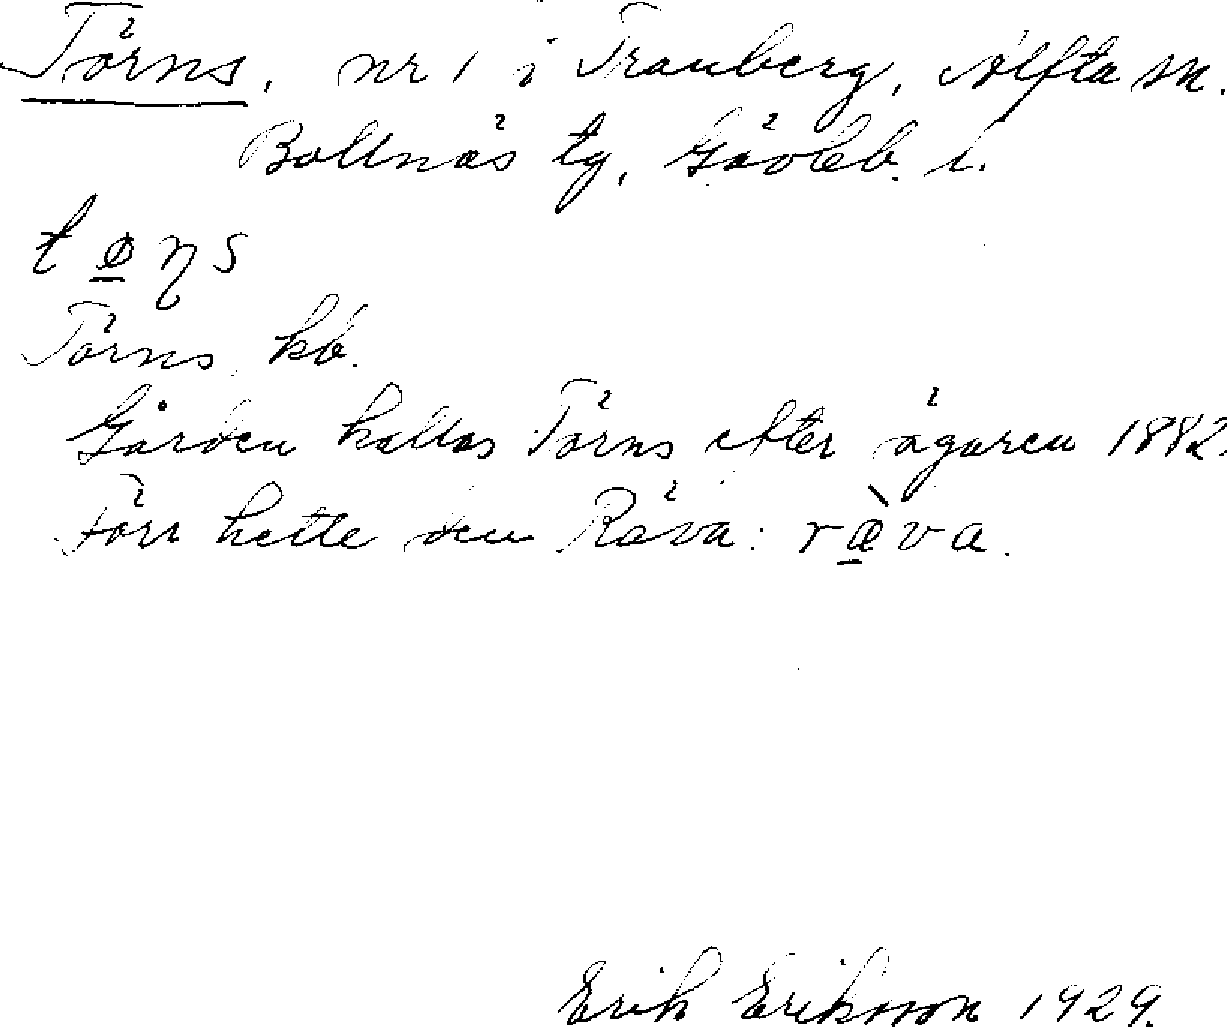 Törns, nr 1 i Tranberg, Alfta sn.
Bollnäs tg, Gävleb. l.
tøŋs
Törns, kb.
Gården kallas Törns efter ägaren 1882.
Förr hette den Räva: ræ̀va.
Erik Eriksson 1929.